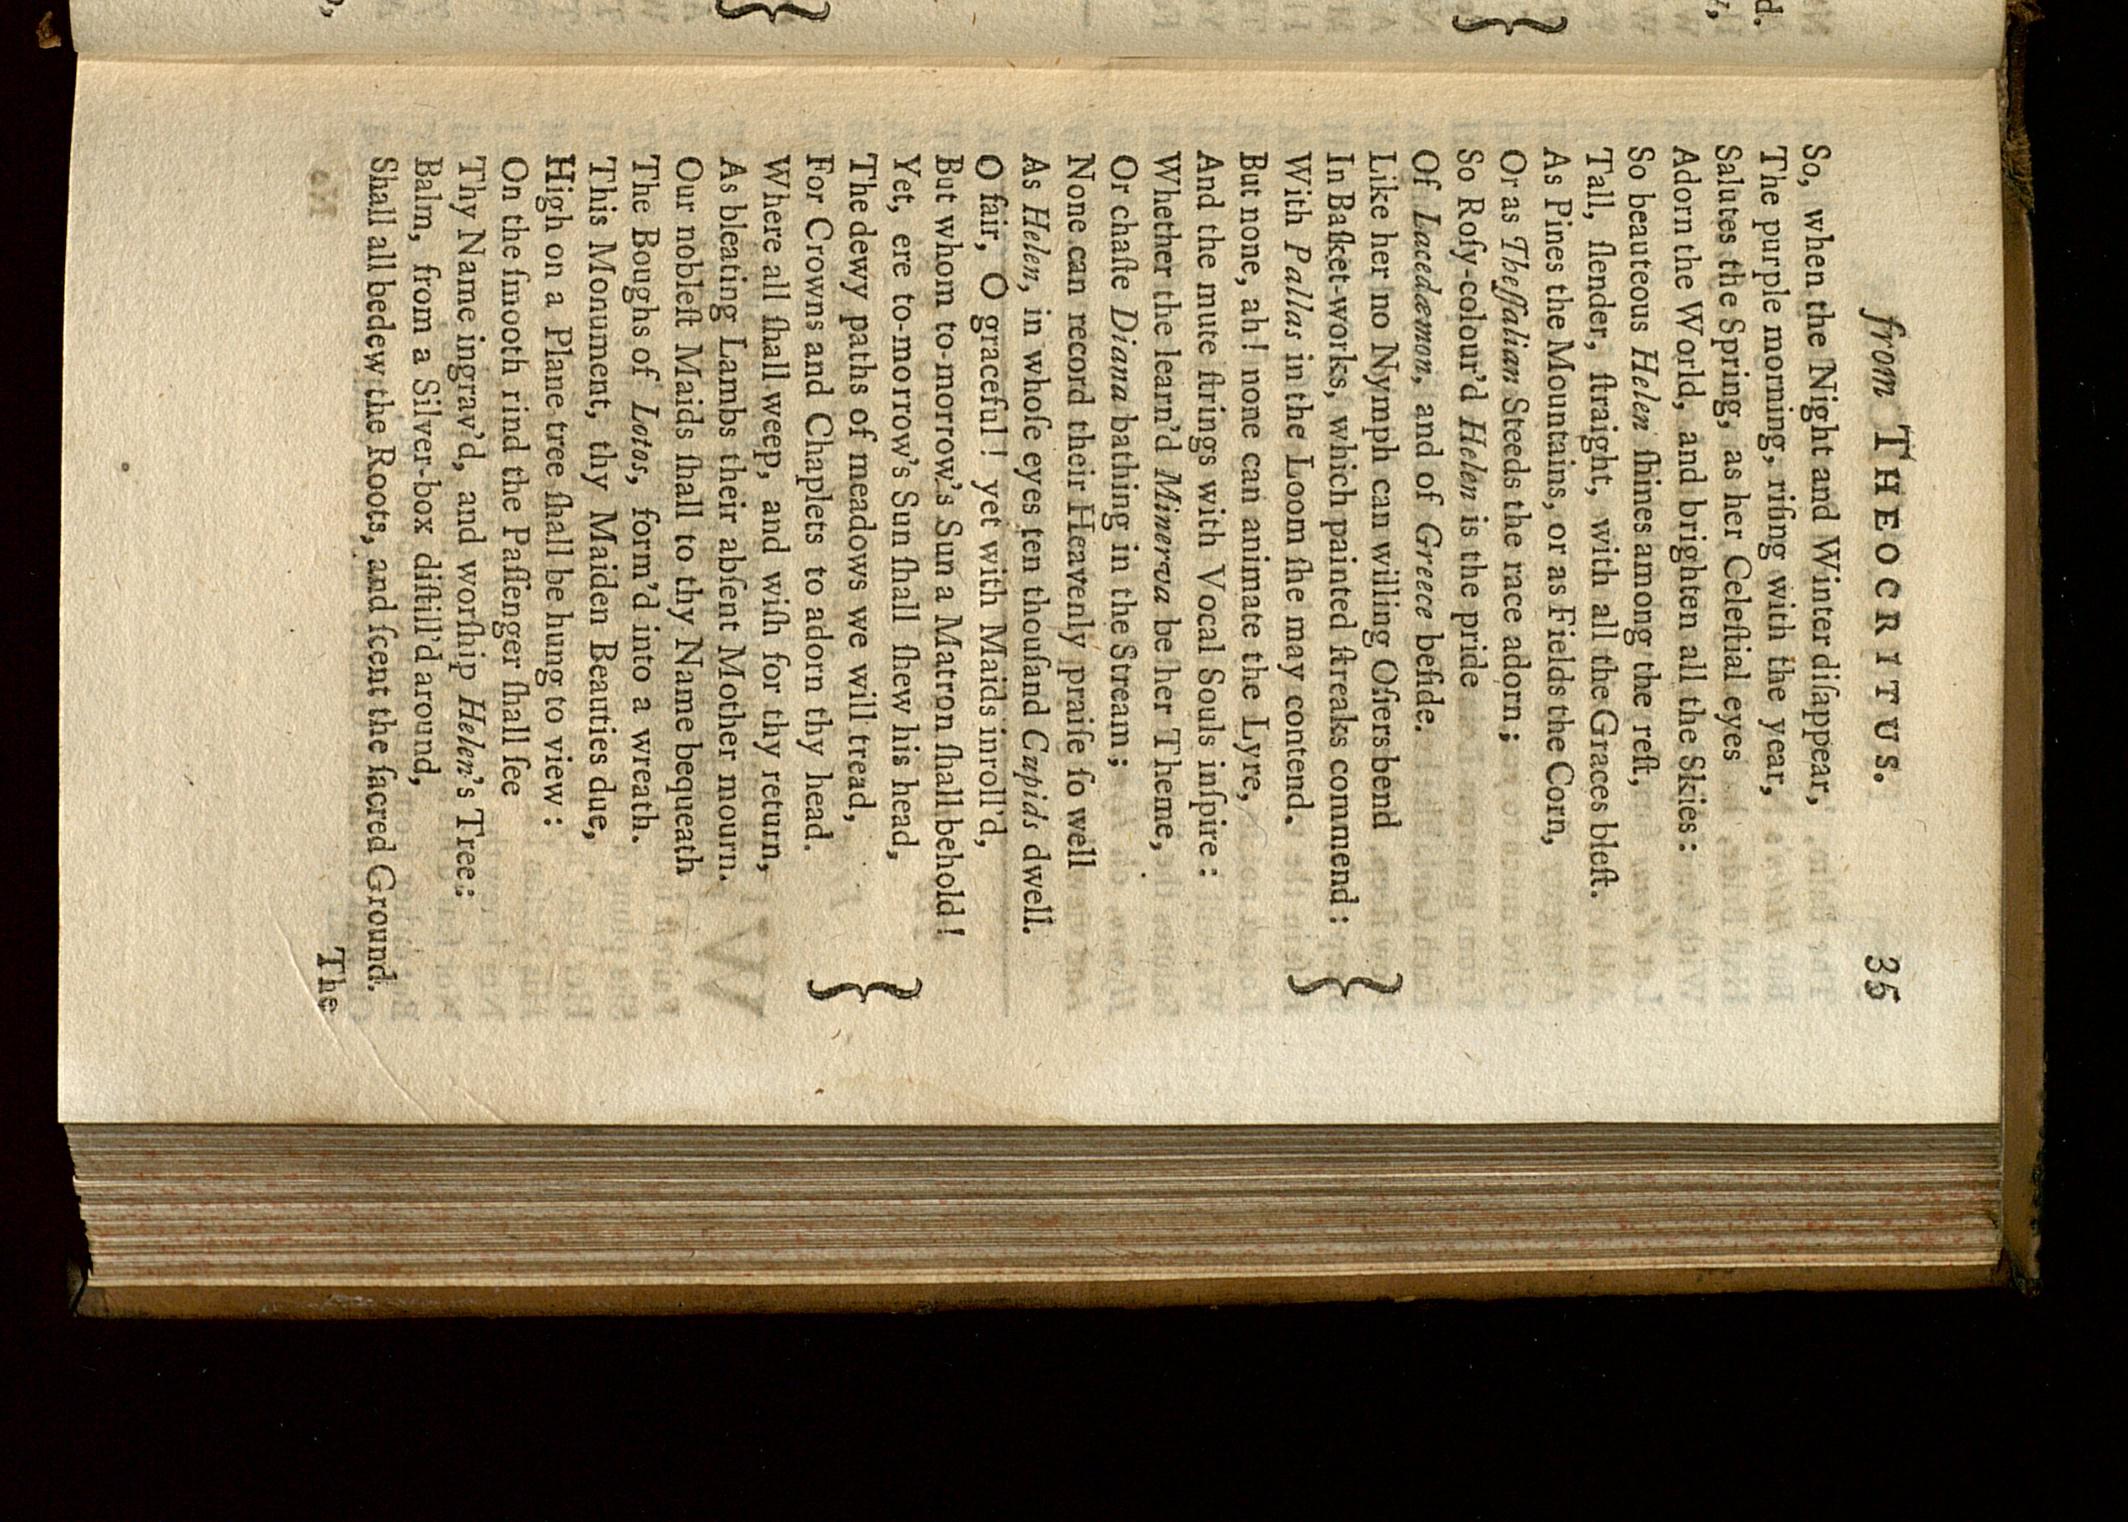 from THEOCRITUS. 35
So, when the Night and Winter diſappear,
The purple morning, riſing with the year,
Salutes the Spring, as her Celeſtial eyes
Adorn the World, and brighten all the Skies:
So beauteous Helen ſhines among the reſt,
Tall, ſlender, ſtraight, with all the Graces bleſt.
As Pines the Mountains, or as Fields the Corn,
Or as Theſſalian Steeds the race adorn;
So Roſy-colour'd Helen is the pride
Of Lacedæmon, and of Greece beſide.
Like her no Nymph can willing Oſiers bend
In Baſket-works, which painted ſtreaks commend:
With Pallas in the Loom ſhe may contend.
But none, ah! none can animate the Lyre,
And the mute ſtrings with Vocal Souls inſpire:
Whether the learn'd Minerva be her Theme,
Or chaſte Diana bathing in the Stream;
None can record their Heavenly praiſe ſo well
As Helen, in whoſe eyes ten thouſand Cupids dwell.
O fair, O graceful! yet with Maids inroll'd,
But whom to-morrow's Sun a Matron ſhall behold!
Yet, ere to-morrow's Sun ſhall ſhew his head,
The dewy paths of meadows we will tread,
For Crowns and Chaplets to adorn thy head.
Where all ſhall weep, and wiſh for thy return,
As bleating Lambs their abſent Mother mourn.
Our nobleſt Maids ſhall to thy Name bequeath
The Boughs of Lotos, form'd into a wreath.
This Monument, thy Maiden Beauties due,
High on a Plane tree ſhall be hung to view:
On the ſmooth rind the Paſſenger ſhall ſee
Thy Name ingrav'd, and worſhip Helen's Tree:
Balm, from a Silver-box diſtill'd around,
Shall all bedew the Roots, and ſcent the ſacred Ground.
The